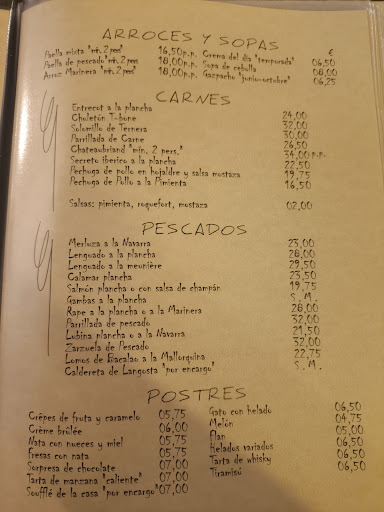 ARROCES Y SOPAS
€
Paella mixta "min. 2 pers" 16,50p.p.
Paella de pescado "min. 2 pers" 18,00p.p.
Arroz Marinera "min. 2 pers" 18,00p.p.
Crema del día "temporada" 06,50
Sopa de cebolla 08,00
Gazpacho "junio-octubre" 06,25
CARNES
Entrecot a la plancha 24,00
Chuletón T-bone 32,00
Solomillo de Ternera 30,00
Parrillada de Carne 26,50
Chateaubriand "min. 2 pers." 34,00 p.p.
Secreto ibérico a la plancha 22,50
Pechuga de pollo en hojaldre y salsa mostaza 19,75
Pechuga de Pollo a la Pimienta 16,50
Salsas: pimienta, roquefort, mostaza 02,00
PESCADOS
Merluza a la Navarra 23,00
Lenguado a la plancha 28,00
Lenguado a la meunière 29,50
Calamar plancha 23,50
Salmón plancha o con salsa de champán 19,75
Gambas a la plancha S.M.
Rape a la plancha o a la Marinera 28,00
Parrillada de pescado 32,00
Lubina plancha o a la Navarra 21,50
Zarzuela de Pescado 32,00
Lomos de Bacalao a la Mallorquina 22,75
Caldereta de Langosta "por encargo" S.M.
POSTRES
Crêpes de fruta y caramelo 05,75
Crème brûlée 06,00
Nata con nueces y miel 05,75
Fresas con nata 05,75
Sorpresa de chocolate 07,00
Tarta de manzana "caliente" 07,00
Soufflé de la casa "por encargo" 07,00
Gato con helado 06,50
Melón 04,75
Flan 05,00
Helados variados 06,50
Tarta de whisky 06,50
Tiramisú 06,50